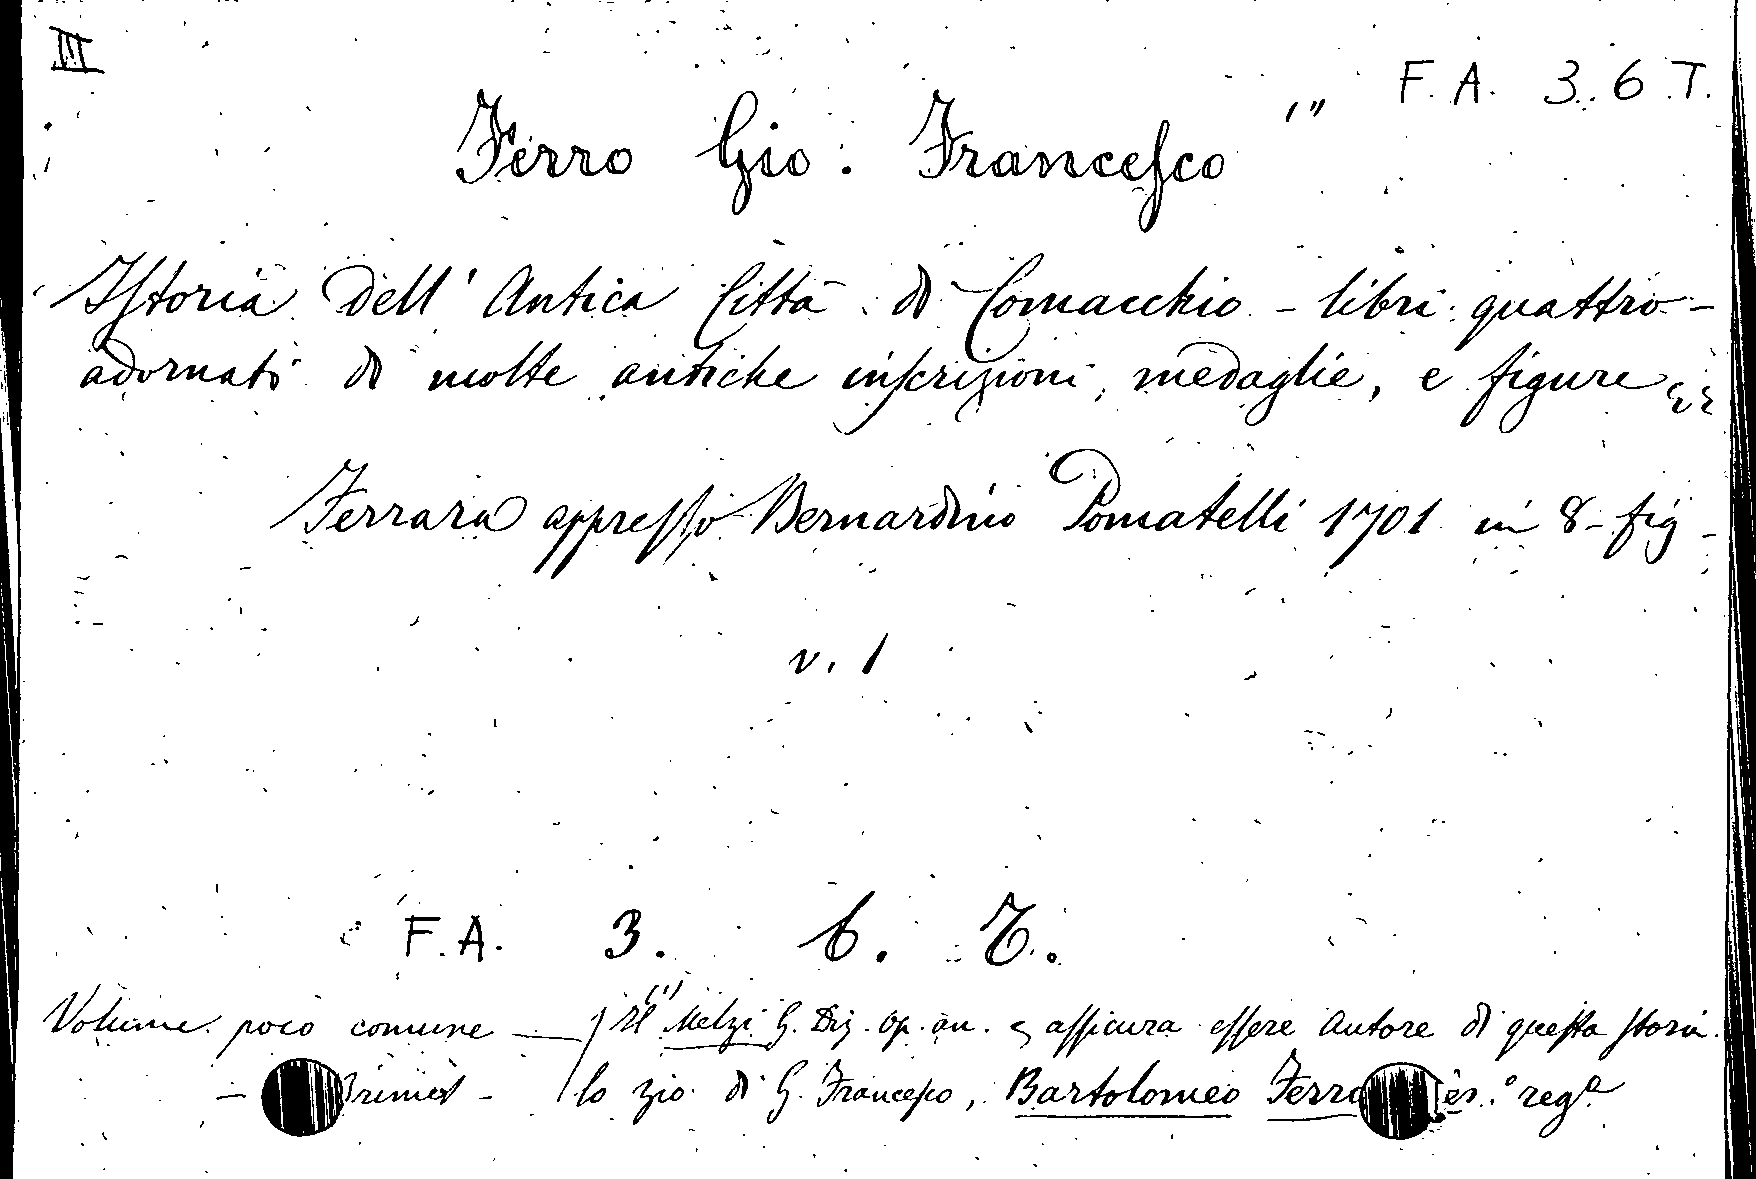 III
F. A. 3. 6 T.
Ferro Gio: Francesco (")
Istoria dell' Antica Città di Comacchio - libri quattro -
adornati di molte antiche inscrizioni, medaglie, e figure
Ferrara appresso Bernardino Pomatelli 1701 in 8 - fig -
v. 1
F. A. 3. 6. T.
Volume poco comune — (") Il Melzi G. Diz. op. an. assicura essere Autore di questa storia
lo zio di G. Francesco, Bartolomeo Ferro reg.e